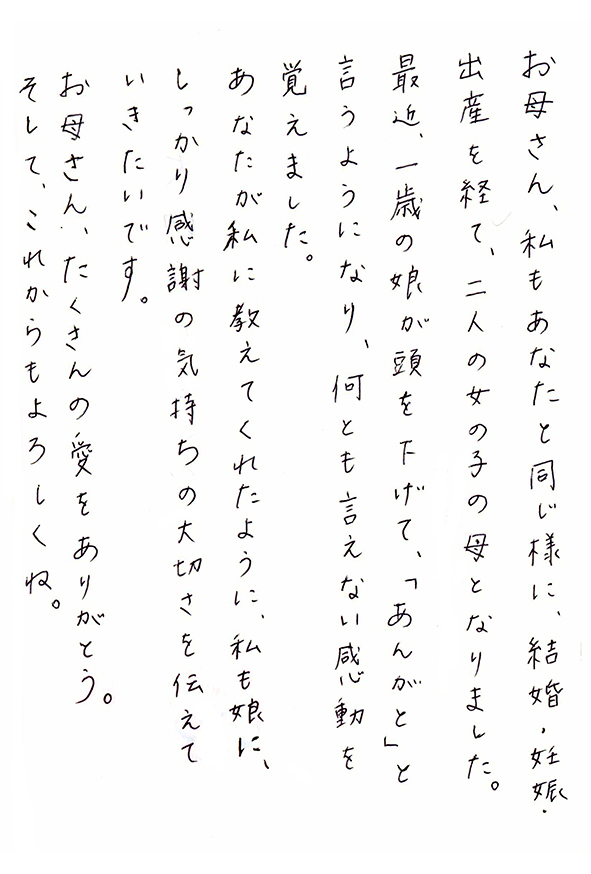 お母さん、私もあなたと同じ様に、結婚・妊娠・
出産を経て、二人の女の子の母となりました。
最近、一歳の娘が頭を下げて、「あんがと」と
言うようになり、何とも言えない感動を
覚えました。
あなたが私に教えてくれたように、私も娘に、
しっかり感謝の気持ちの大切さを伝えて
いきたいです。
お母さん、たくさんの愛をありがとう。
そして、これからもよろしくね。